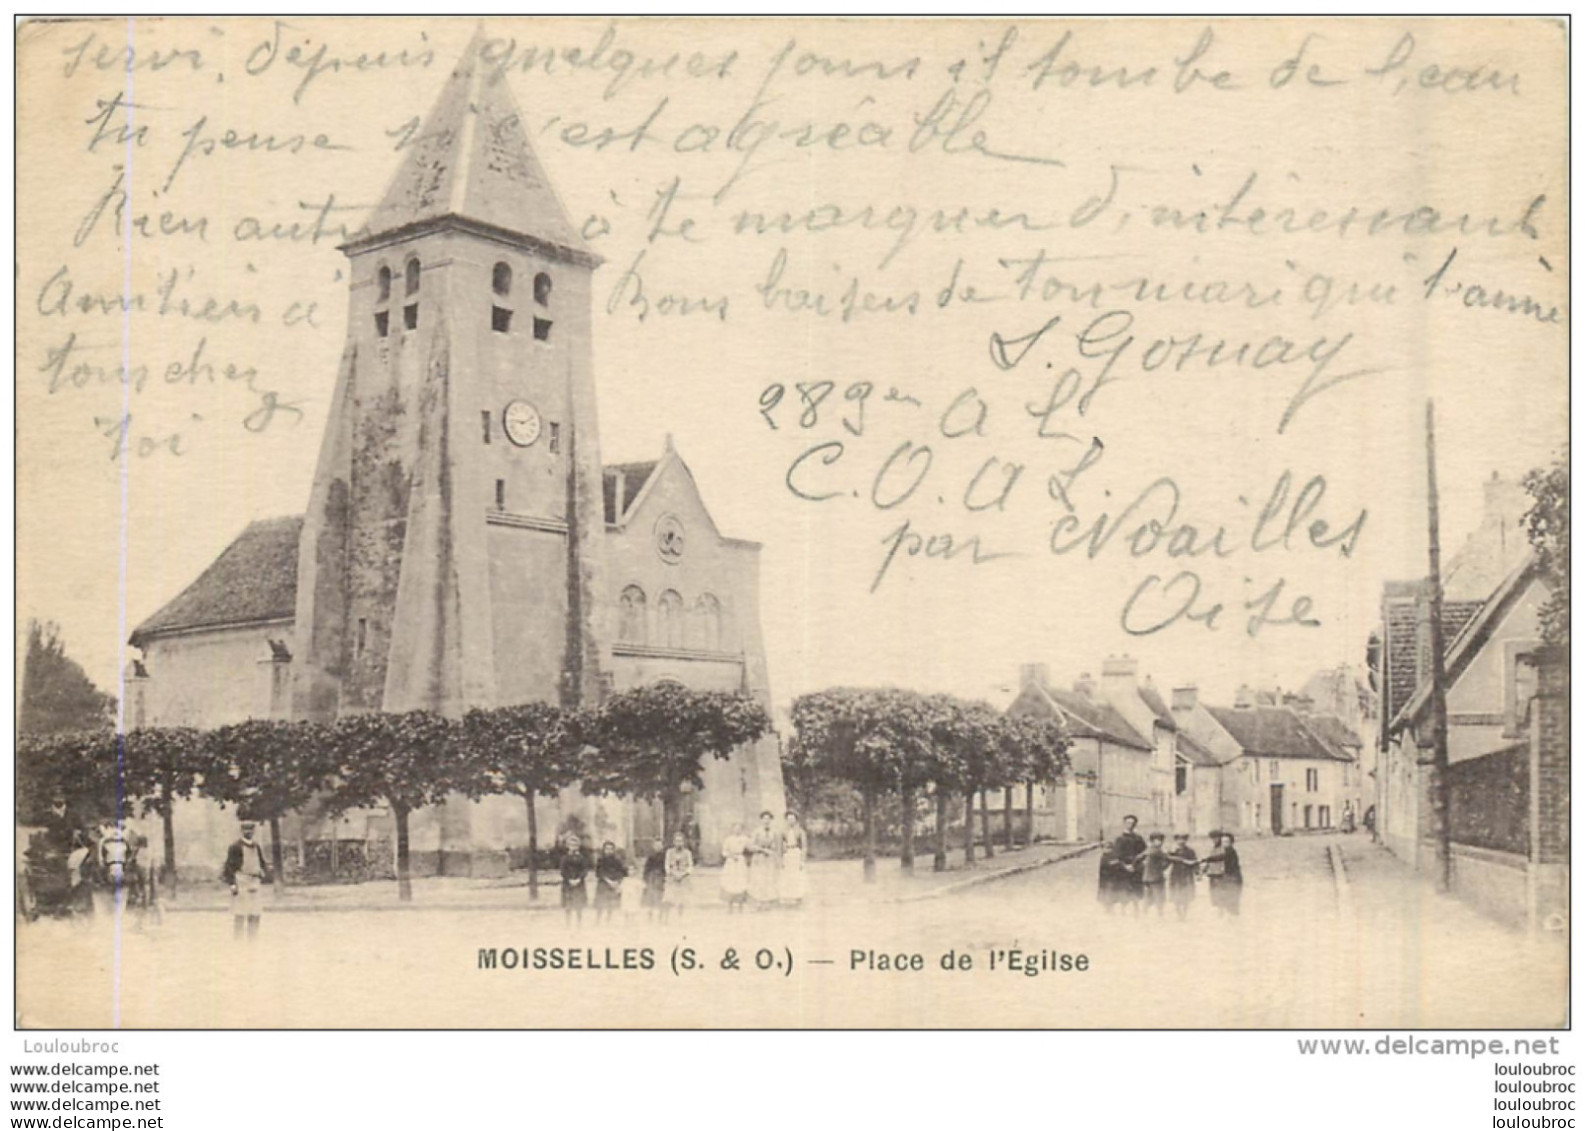 servi, depuis quelques jours il tombe de l'eau
tu pense si c'est agréable
Rien autre à te marquer d'intéressant
Amitiers à Bons baisers de ton mari qui t'aime
tous chez S. Gosnay
toi
289em A L
C. O. A L.
par Noailles
Oise
MOISSELLES (S. & O.) — Place de l'Égilse
Louloubroc
www.delcampe.net
www.delcampe.net
www.delcampe.net
www.delcampe.net
www.delcampe.net
louloubroc
louloubroc
louloubroc
louloubroc